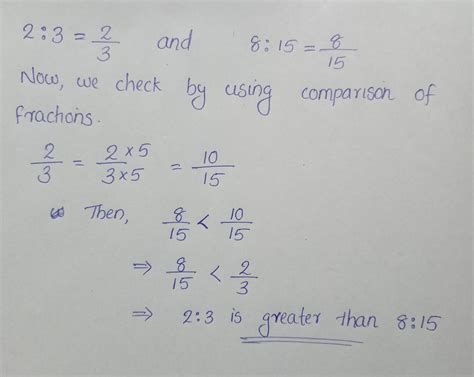 2:3 = 2/3 and 8:15 = 8/15
Now, we check by using comparison of
frachons.
2/3 = 2×5/3×5 = 10/15
Then, 8/15 < 10/15
⇒ 8/15 < 2/3
⇒ 2:3 is greater than 8:15